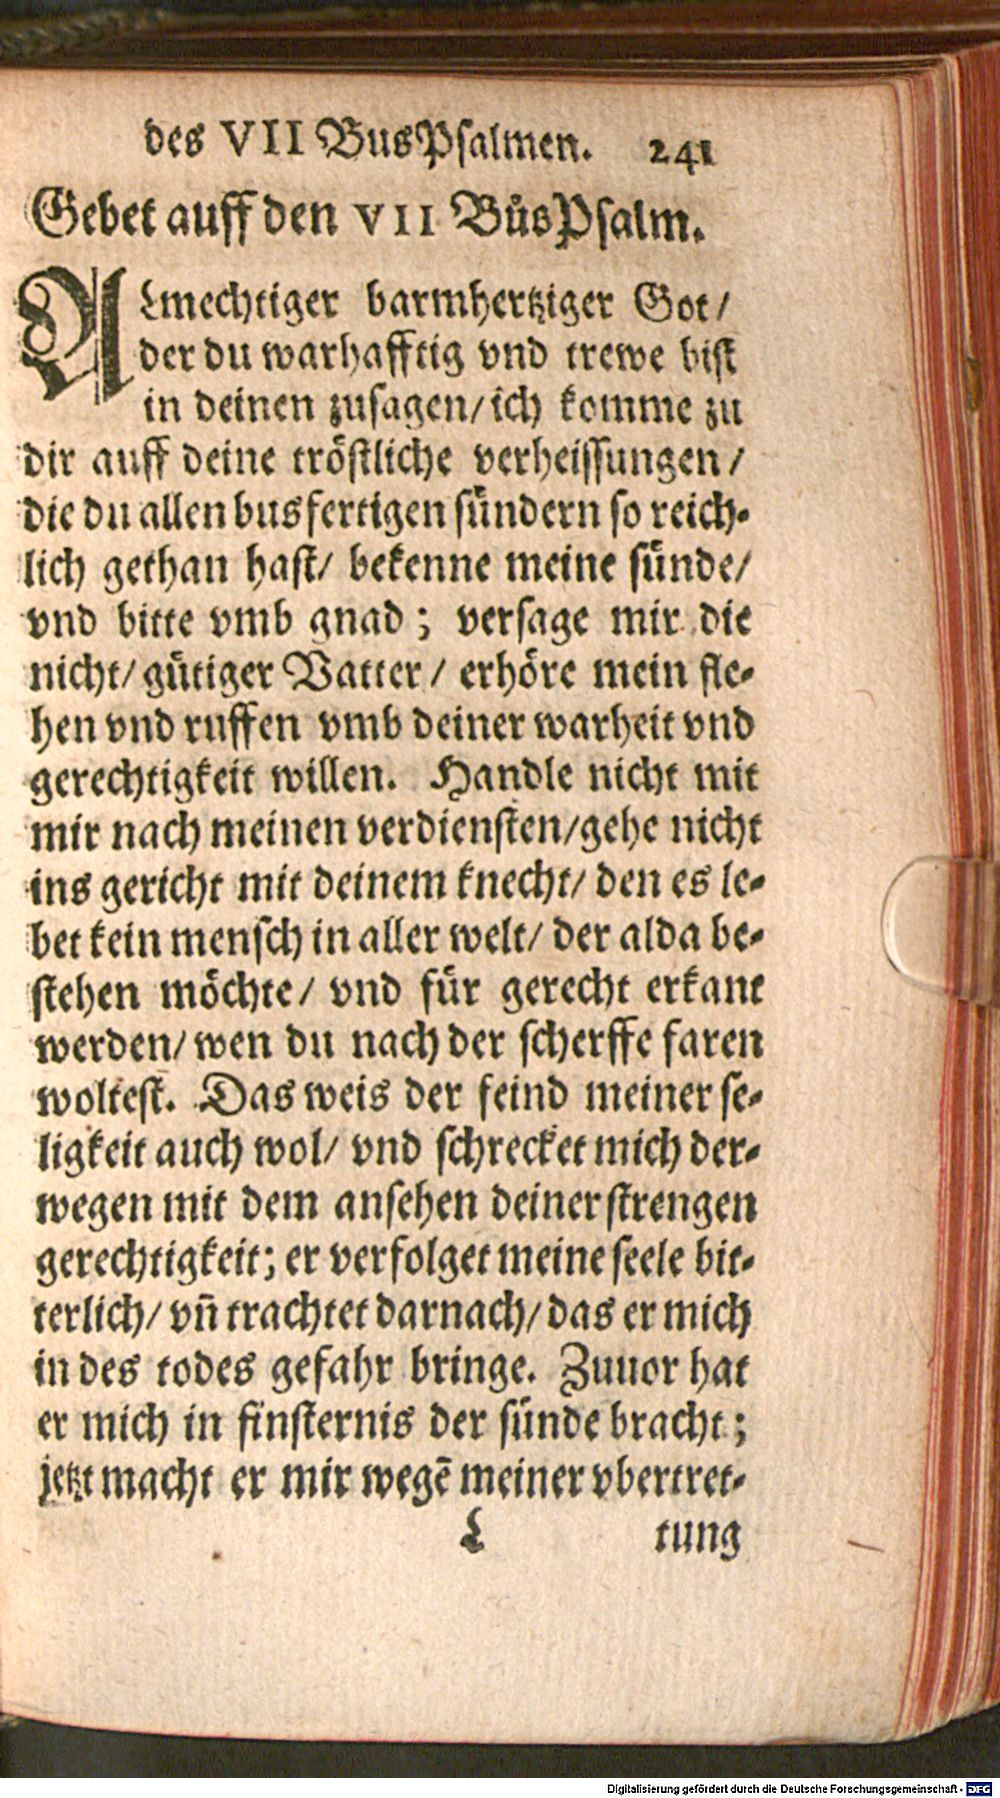 des VII BusPsalmen. 241
Gebet auff den VII BůsPsalm.
ALmechtiger barmhertziger Got/
der du warhafftig vnd trewe bist
in deinen zusagen/ich komme zu
dir auff deine tröstliche verheissungen/
die du allen busfertigen sündern so reich-
lich gethan hast/ bekenne meine sünde/
vnd bitte vmb gnad; versage mir die
nicht/gütiger Vatter/ erhöre mein fle-
hen vnd ruffen vmb deiner warheit vnd
gerechtigkeit willen. Handle nicht mit
mir nach meinen verdiensten/gehe nicht
ins gericht mit deinem knecht/ den es le-
bet kein mensch in aller welt/ der alda be-
stehen möchte/ vnd für gerecht erkant
werden/wen du nach der scherffe faren
woltest. Das weis der feind meiner se-
ligkeit auch wol/ vnd schrecket mich der-
wegen mit dem ansehen deiner strengen
gerechtigkeit; er verfolget meine seele bit-
terlich/ vñ trachtet darnach/das er mich
in des todes gefahr bringe. Zuuor hat
er mich in finsternis der sünde bracht;
jetzt macht er mir wegē meiner vbertret-
L tung
Digitalisierung gefördert durch die Deutsche Forschungsgemeinschaft - DFG